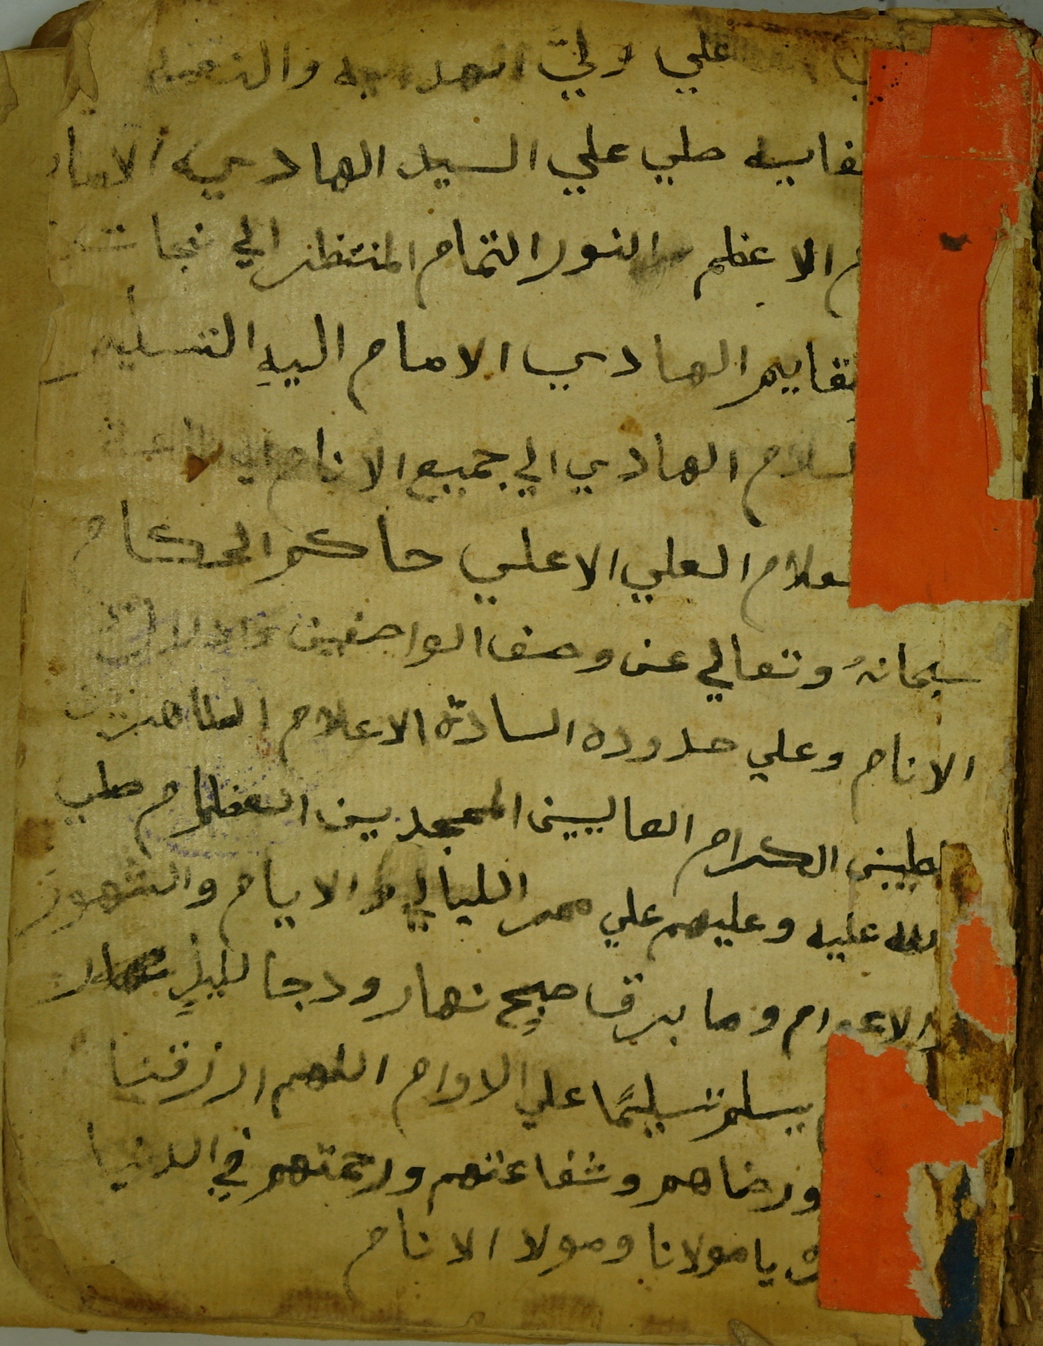 علي ولي الهدايه والنعمه
صلي علي السيد الهادي الاما
الاعظم النور التمام المنتظر الي نجات
لقايم الهادي الامام اليهِ التسليم
لسلام الهادي الي جميع الانام
علام العلي الاعلي حاكم الحكام
سبحانهُ وتعالي عن وصف الواصفين وادراك
الانام وعلي حدوده السادة الاعلام الطاهرين
لطيبين الكرام العاليين الممجدين العظام صلي
لله عليه وعليهم علي ممر الليالي و الايام والشهور
والاعوام وما برق صبح نهار ودجا لليلٍ
يسلم تسليمًا علي الدوام اللهم ارزقنا
ورضاهم وشفاعتهم ورحمتهم في الدنيا
ه يا مولانا ومولا الانام